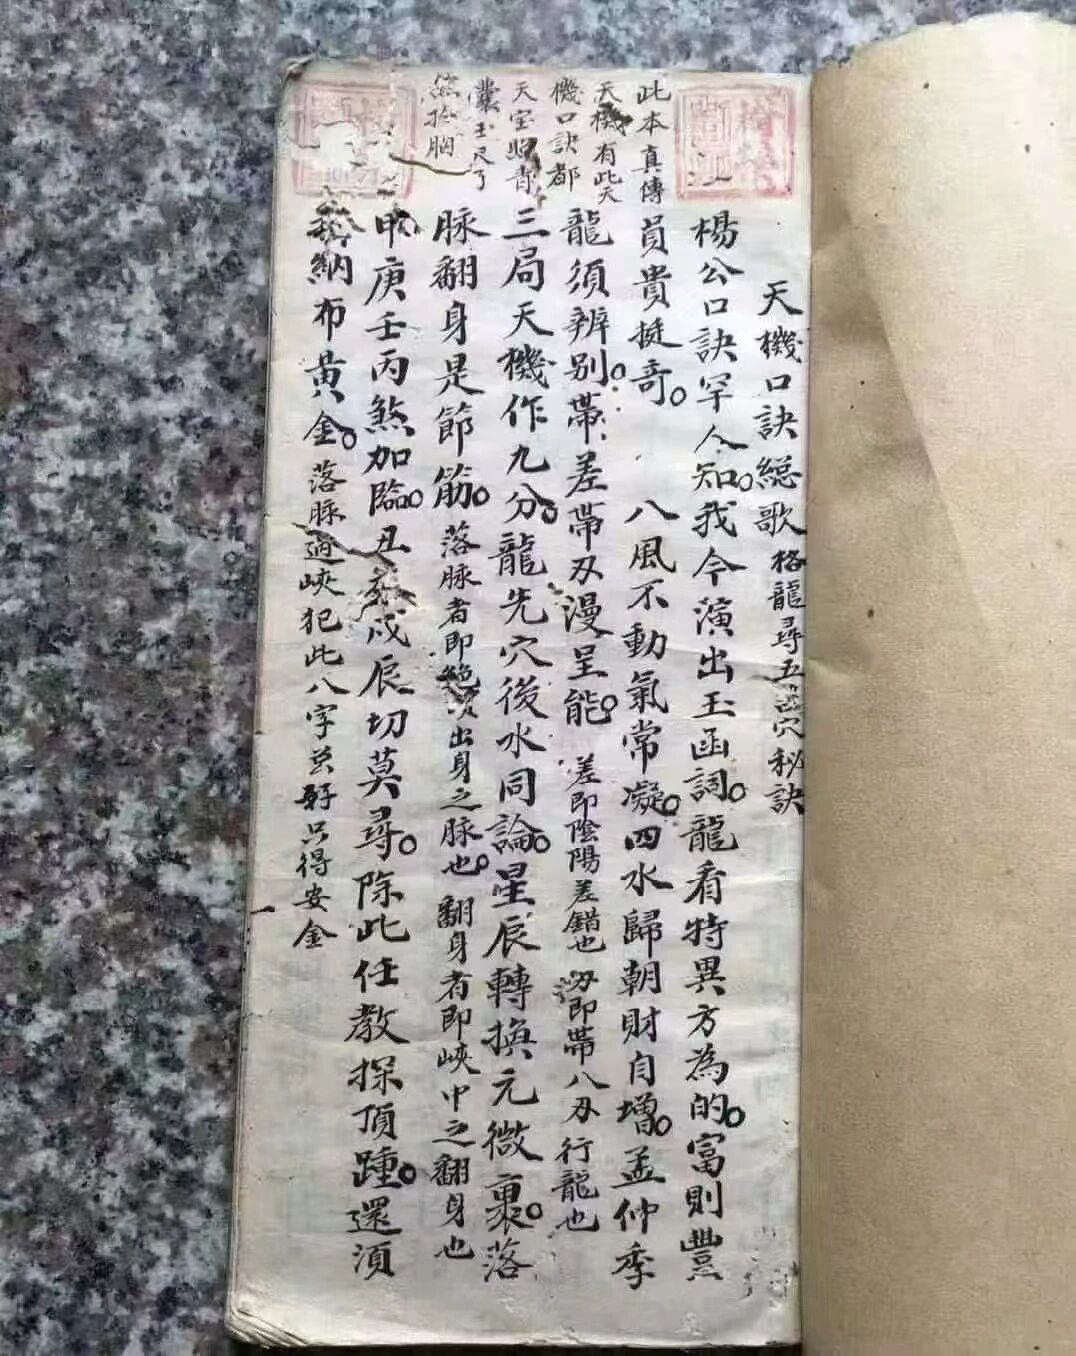 此本真傳
天機有此天
機口訣都
天宝照
囊玉尺了
然於胸
天機口訣総歌 格龍尋五穴秘訣
楊公口訣罕人知。我今演出玉函詞。龍看特異方為的。富則豐
員貴挺奇。 八風不動氣常凝。四水歸朝財自增。孟仲季
龍須辨别。帶差帶刃漫呈能。 差即陰陽差錯也 刃即帶八刃行龍也
三局天機作九分。龍先穴後水同論。星辰轉換元微裹。落
脉翻身是節筋。 落脉者即出身之脉也。 翻身者即峽中之翻身也
甲庚壬丙煞加臨。丑戌辰切莫尋。除此任教探頂踵。還須
納布黄金。 落脉過峽犯此八字並好只得安金